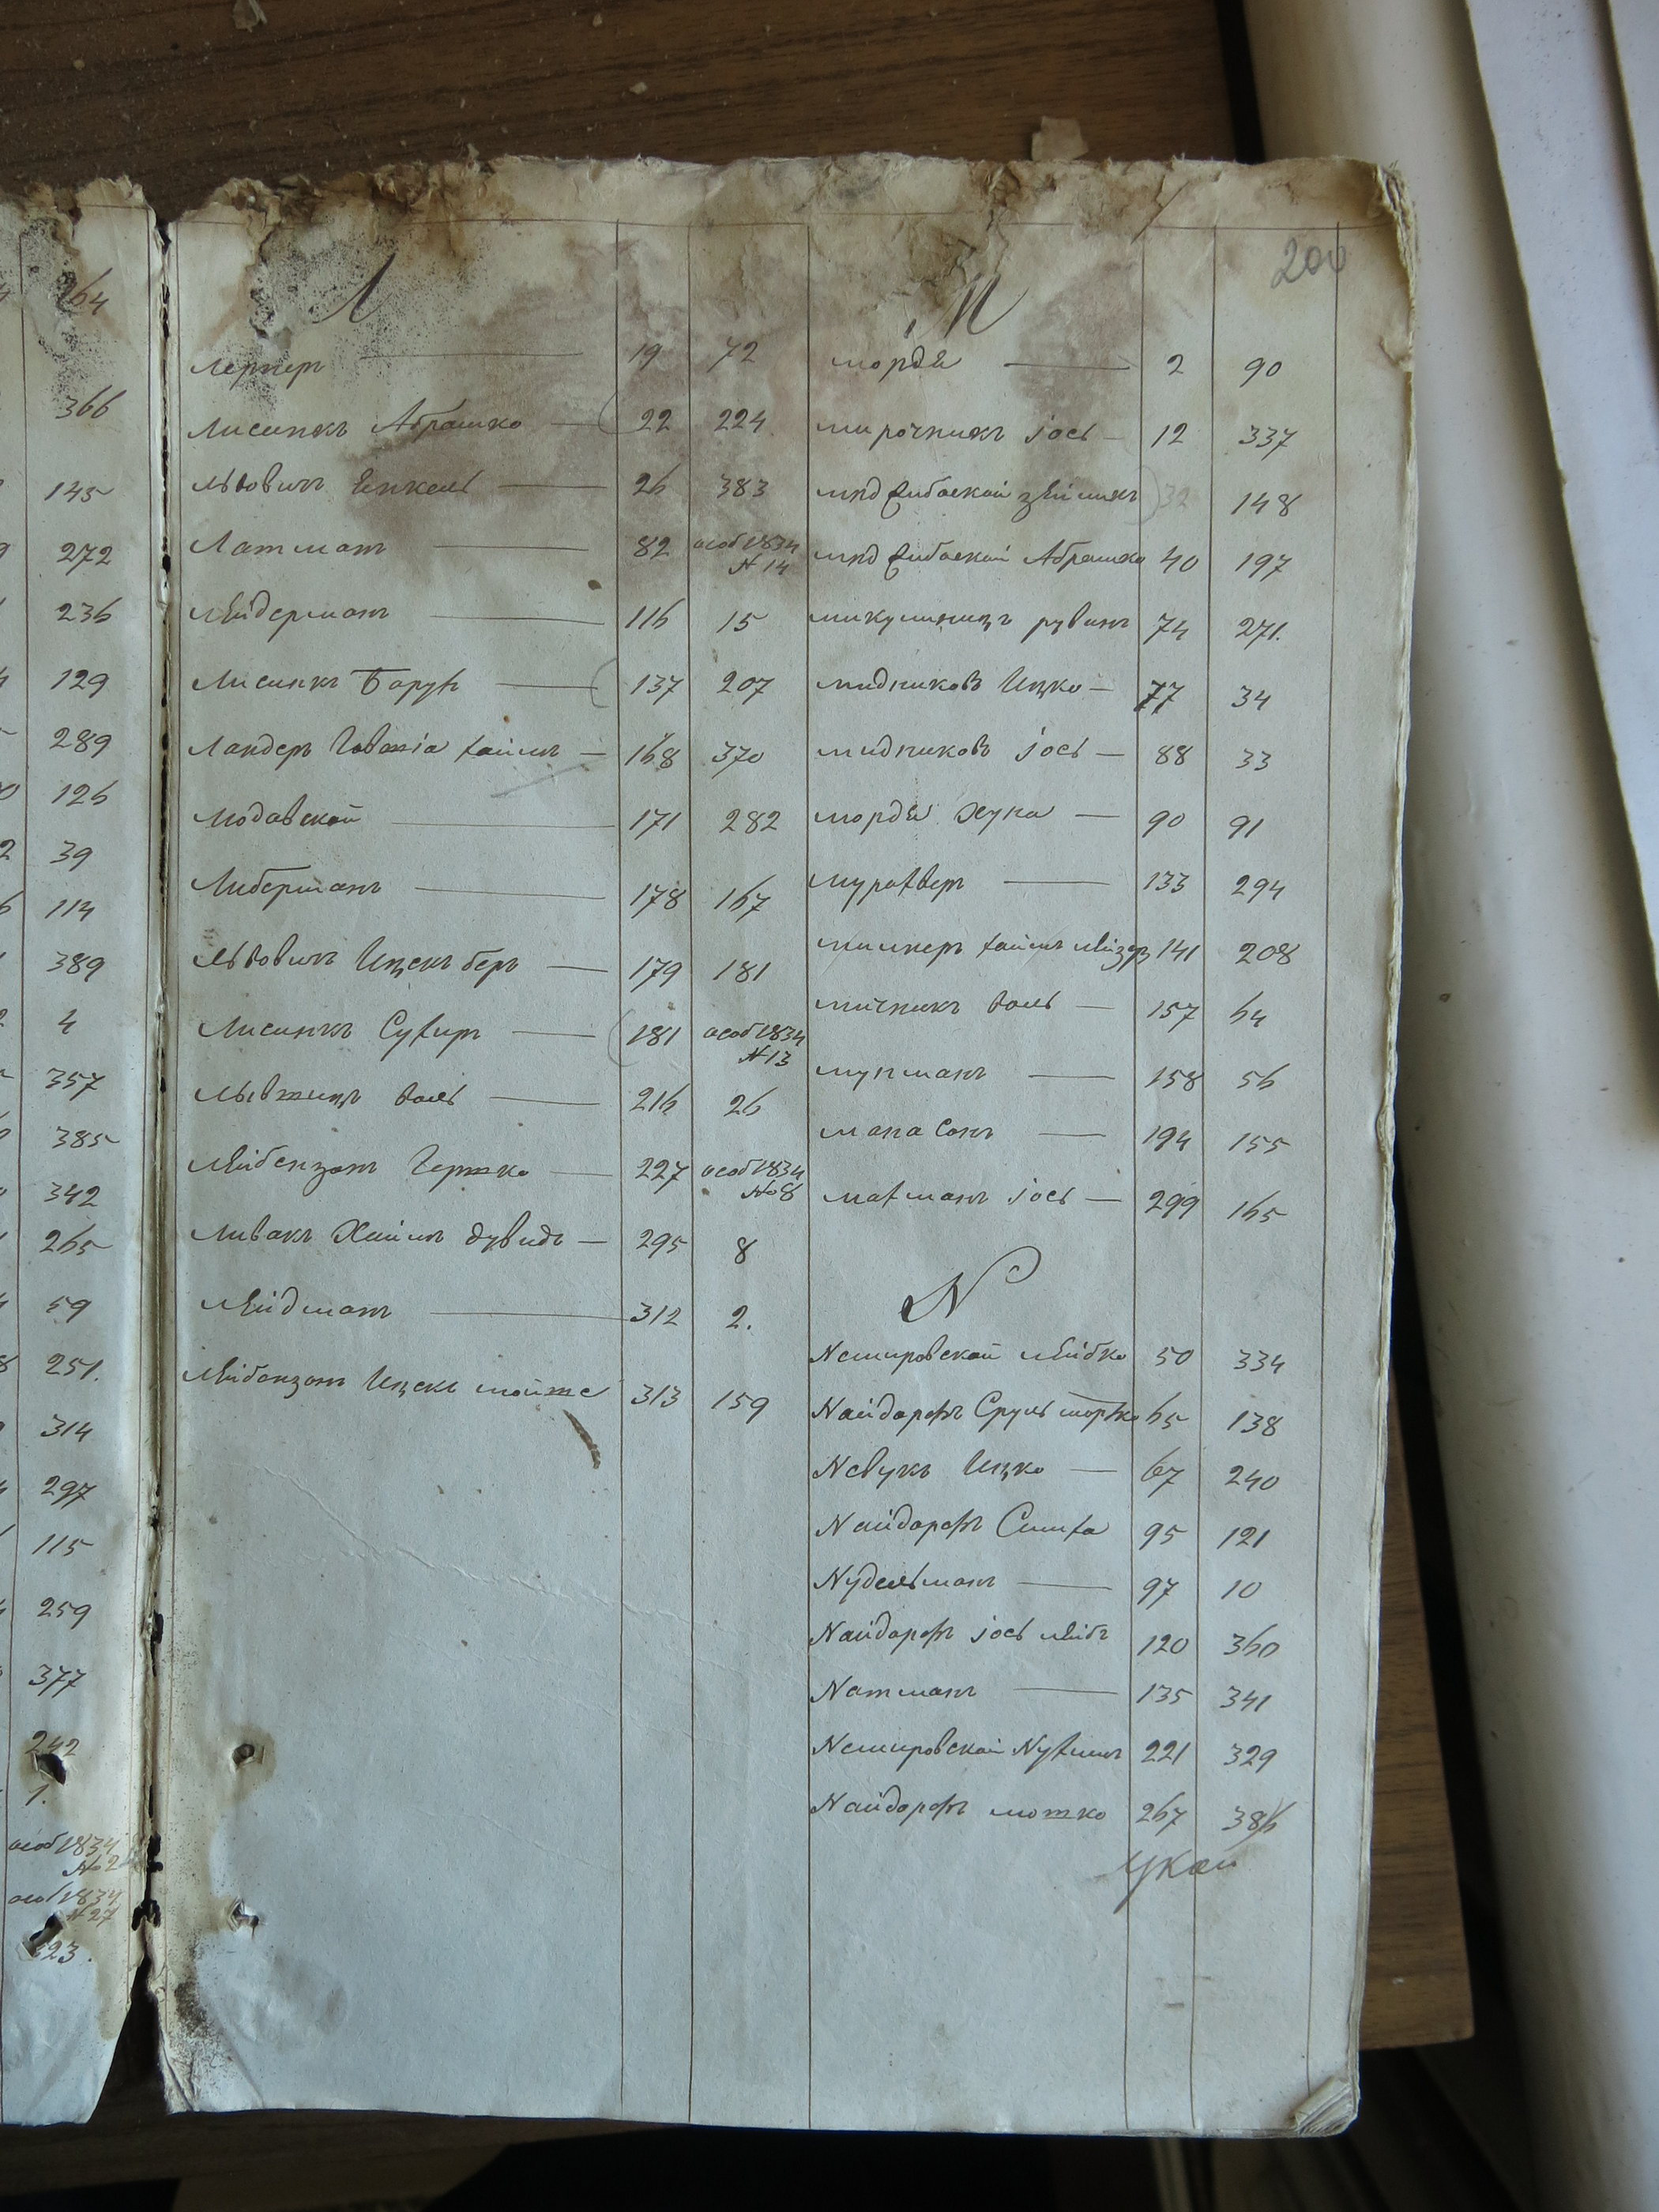 264
366
145
272
236
129
289
126
39
114
389
4
357
385
342
265
59
251.
314
297
115
259
377
242
1.
особ 1834
№ 2
особ 1834
№ 27
323.
200
Л
Лернеръ 19 72
Лисинкъ Абрашко 22 224
Львовичъ Янкель 26 383
Латманъ 82 особ 1834
№ 14
Лейдерманъ 116 15
Лисинкъ Борухъ 137 207
Ландеръ хаимъ 168 370
Лодавской 171 282
Либерманъ 178 167
Львовичъ Ицекъ беръ 179 181
Лисинкъ Сухиръ 181 особ 1834
№ 13
воль 216 26
Лейбензонъ Гершко 227 особ 1834
№ 8
Ливакъ Хаимъ дувидъ 295 8
Лейдманъ 312 2.
Лейбензонъ Ицекъ мойше 313 159
М
мордъ 2 90
мирочникъ іось 12 337
32 148
Абрашко 40 197
микулинецъ рувинъ 74 271.
мидниковъ Ицко 77 34
мидниковъ іось 88 33
мордъ Хуна 90 91
мурахверъ 133 294
милнеръ хаимъ лейзеръ 141 208
мичникъ воль 157 64
мунманъ 158 56
манасонъ 194 155
махманъ іось 299 165
N
Nемировской лейбко 50 334
Nайдорфъ Сруль 65 138
Nевукъ Ицко 67 240
Nайдорфъ Симха 95 121
Nудельманъ 97 10
Nайдорфъ іось лейбъ 120 360
Nатманъ 135 341
Nемировской Nухимъ 221 329
Nайдорфъ мошко 267 386